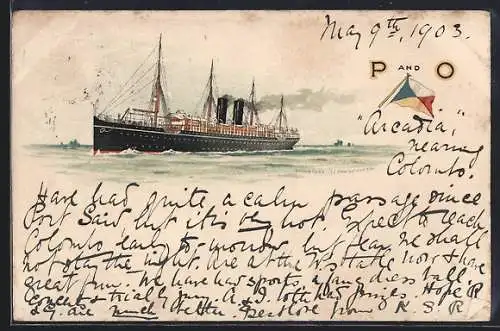 May 9th, 1903.
P AND O
"Arcadia,"
nearing
Colombo.
Have had quite a calm passage since
Port Said, but it is very hot. Expect to reach
Colombo early to-morrow, but fear we shall
not stay the night. Are at the now & have
great fun. We have had sports, a fancy dress ball,
concert & trial by jury. A. & both had prizes. Hope
are much better. Best love from K S R